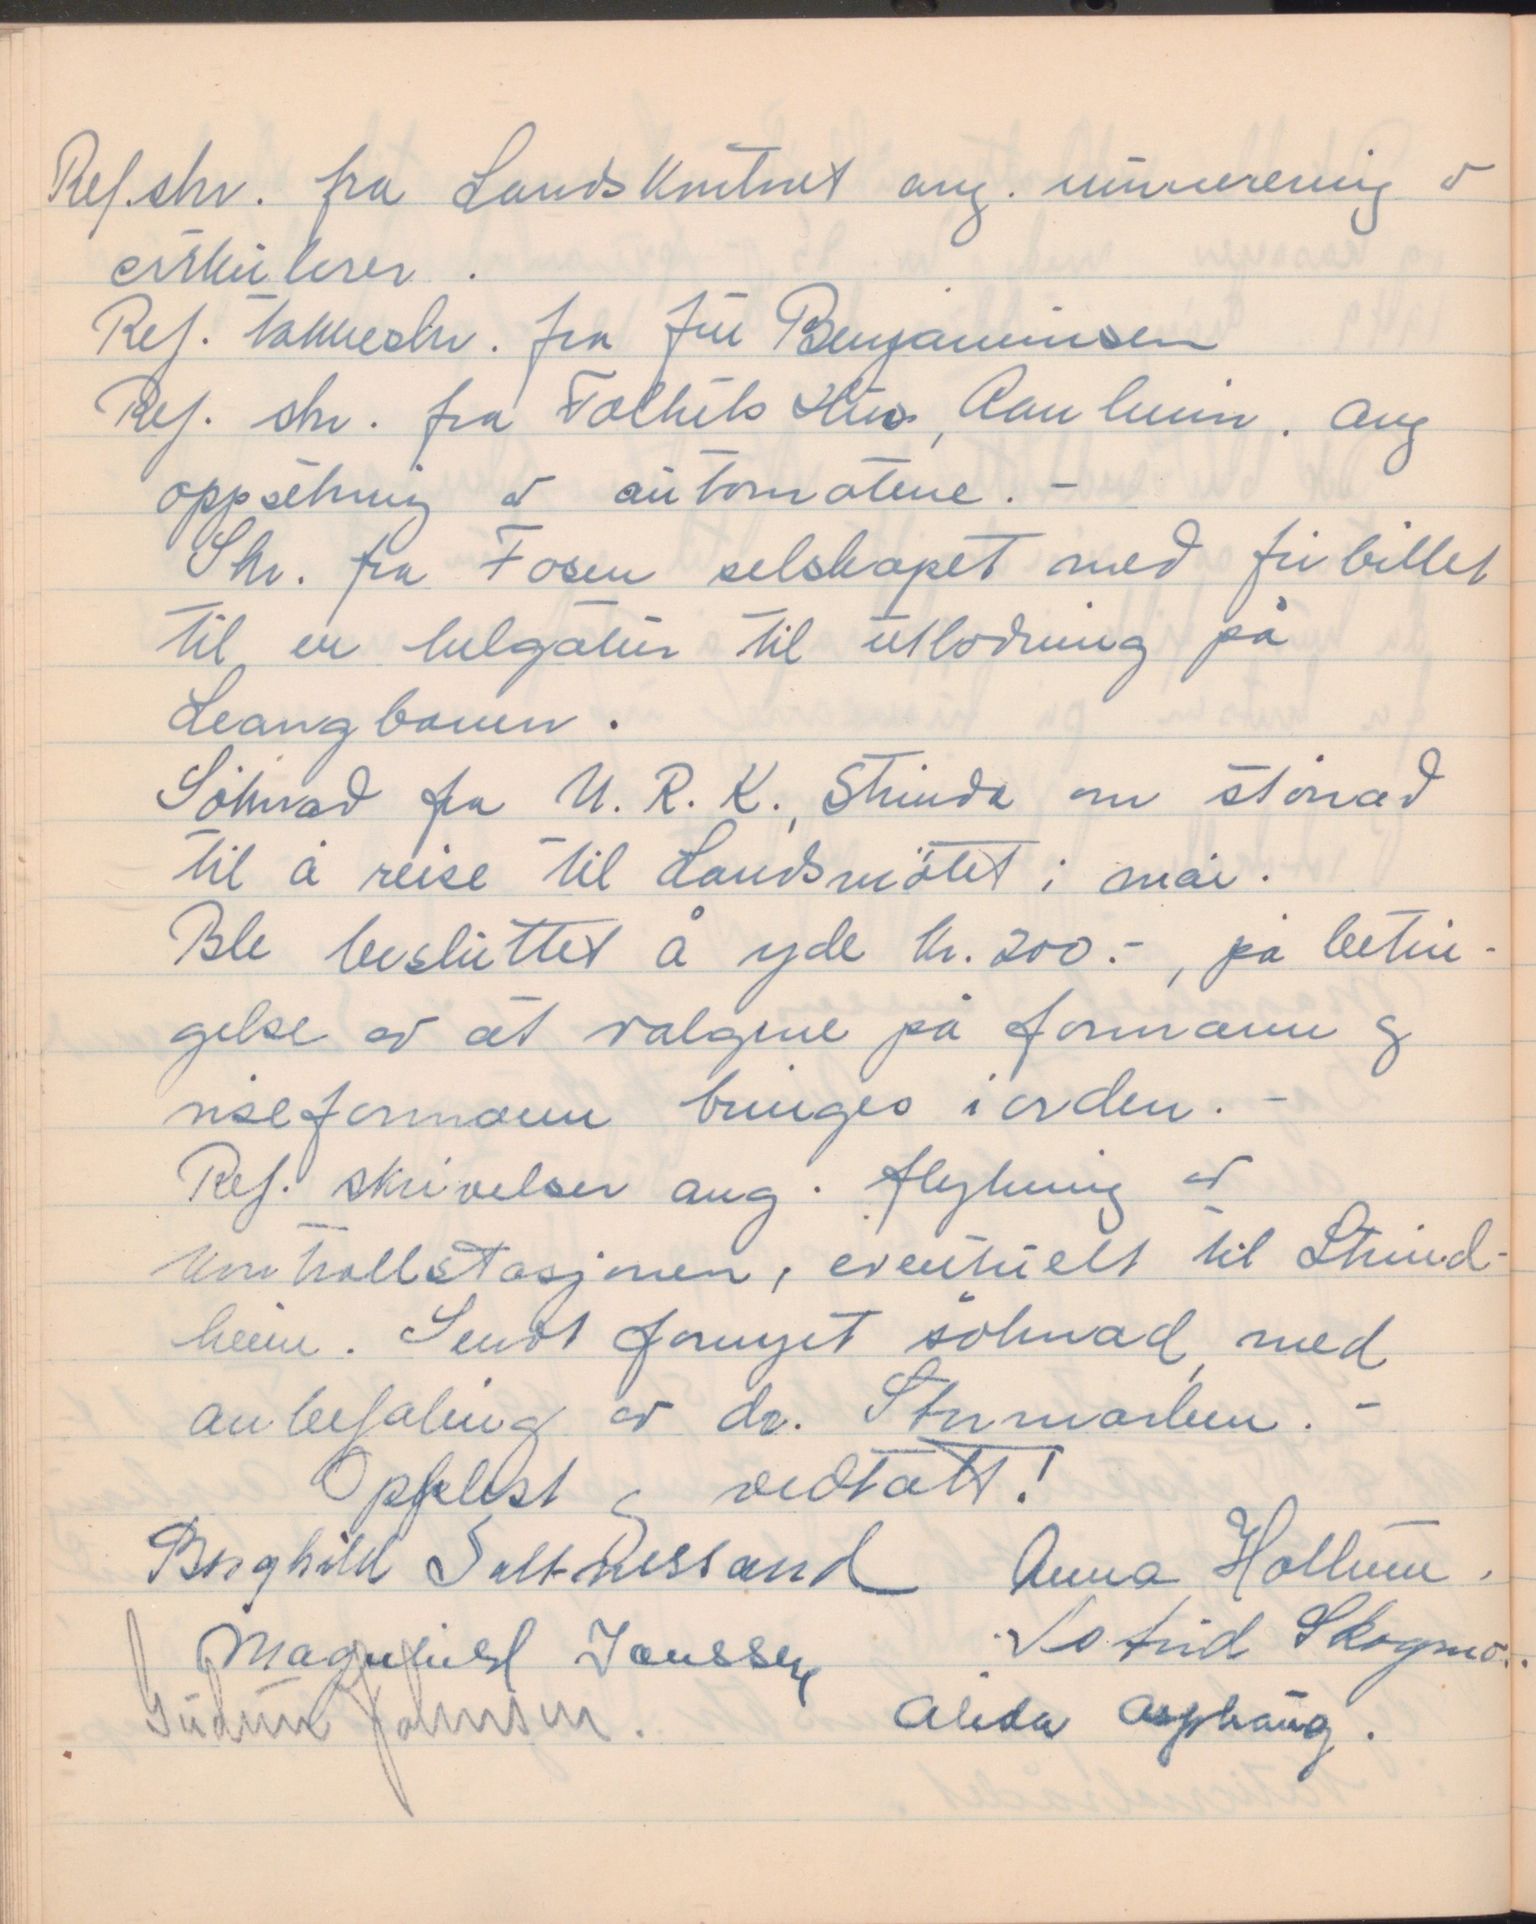 Ref. skr. fra Landskontoret ang. nummerering av
cirkulerer.
Ref. takkeskr. fra fru Benjaminsen
Ref. skr. fra Folkets Hus, ang
oppsetning av automatene. -
Skr. fra Fosen selskapet med fribillet
til en helgatur til utlodning på
Leangbanen.
Söknad fra U. R. K., Strinda om stönad
til å reise til Landsmötet i mai.
Ble besluttet å yde kr. 200.-, på betin-
gelse av at valgene på formann og
viseformann bringes i orden. -
Ref. skrivelser ang. flytning av
kontrollstasjonen, eventuelt til Strind-
heim. Sendt fornyet söknad, med
anbefaling av dr. Stormorken. -
Opplest og vedtatt!
Borghild Saltnessand Anna Hollum.
Magnhild Janssen Astrid Skogmo.
Gudrun Johnsen. Alida Asphaug.